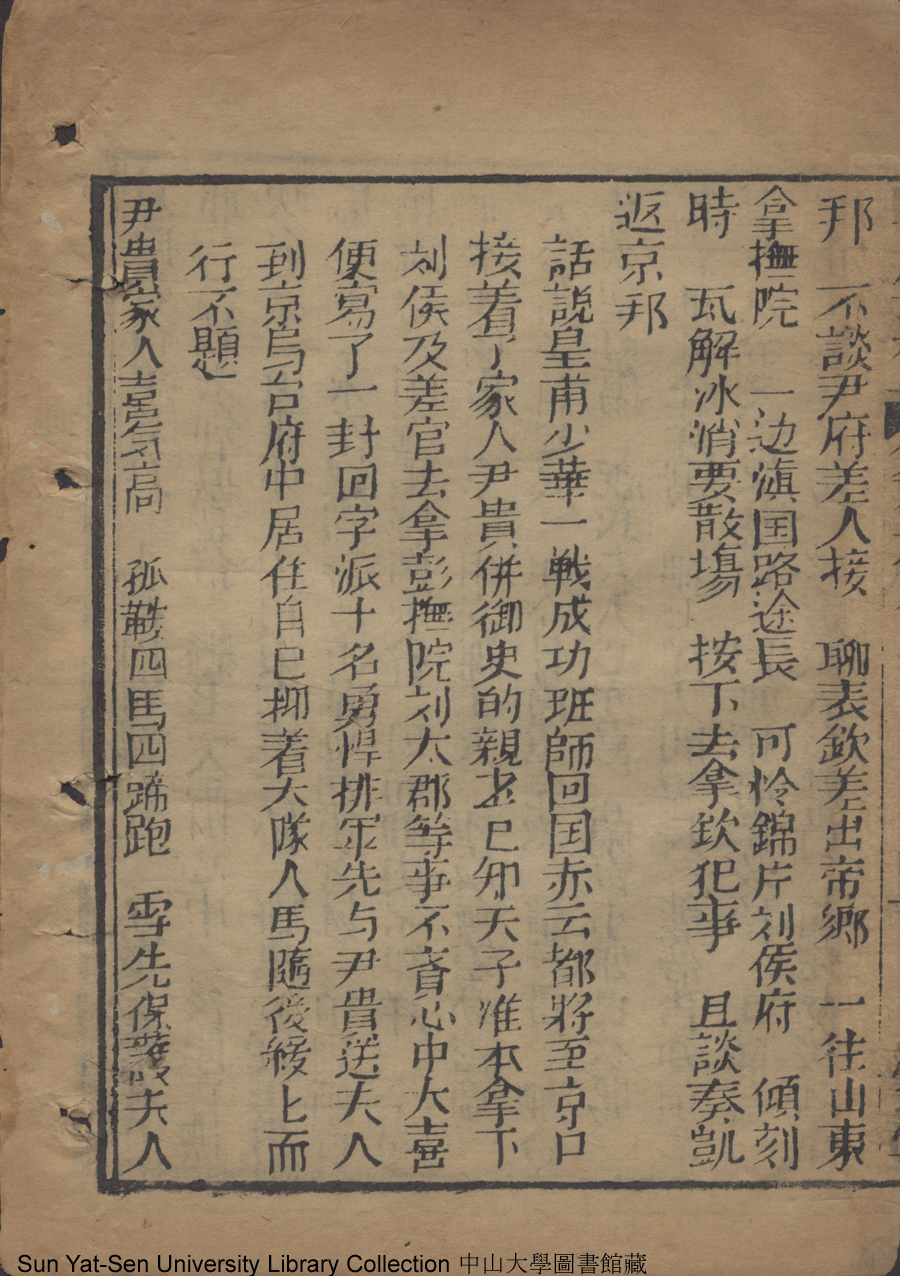 邦 不談尹府差人接 聊表欽差出帝鄉 一往山東
拿撫院 一边滇国路途長 可怜錦片刘侯府 傾刻
時 瓦解冰消要散場 按下去拿欽犯事 且談奏凱
返京邦
話說皇甫少華一戦成功班師回国赤云都將至京口
接着了家人尹貴併御史的親 已知天子准本拿下
刘侯及差官去拿彭撫院刘太郡等事不 心中大喜
便寫了一封回字派十名勇悍排軍先与尹貴送夫人
到京烏台府中居住自已 着大隊人馬隨後緩上而
行不題
尹貴家人喜気高 孤 四馬四蹄跑 先保護夫人
Sun Yat-Sen University Library Collection 中山大學圖書館藏